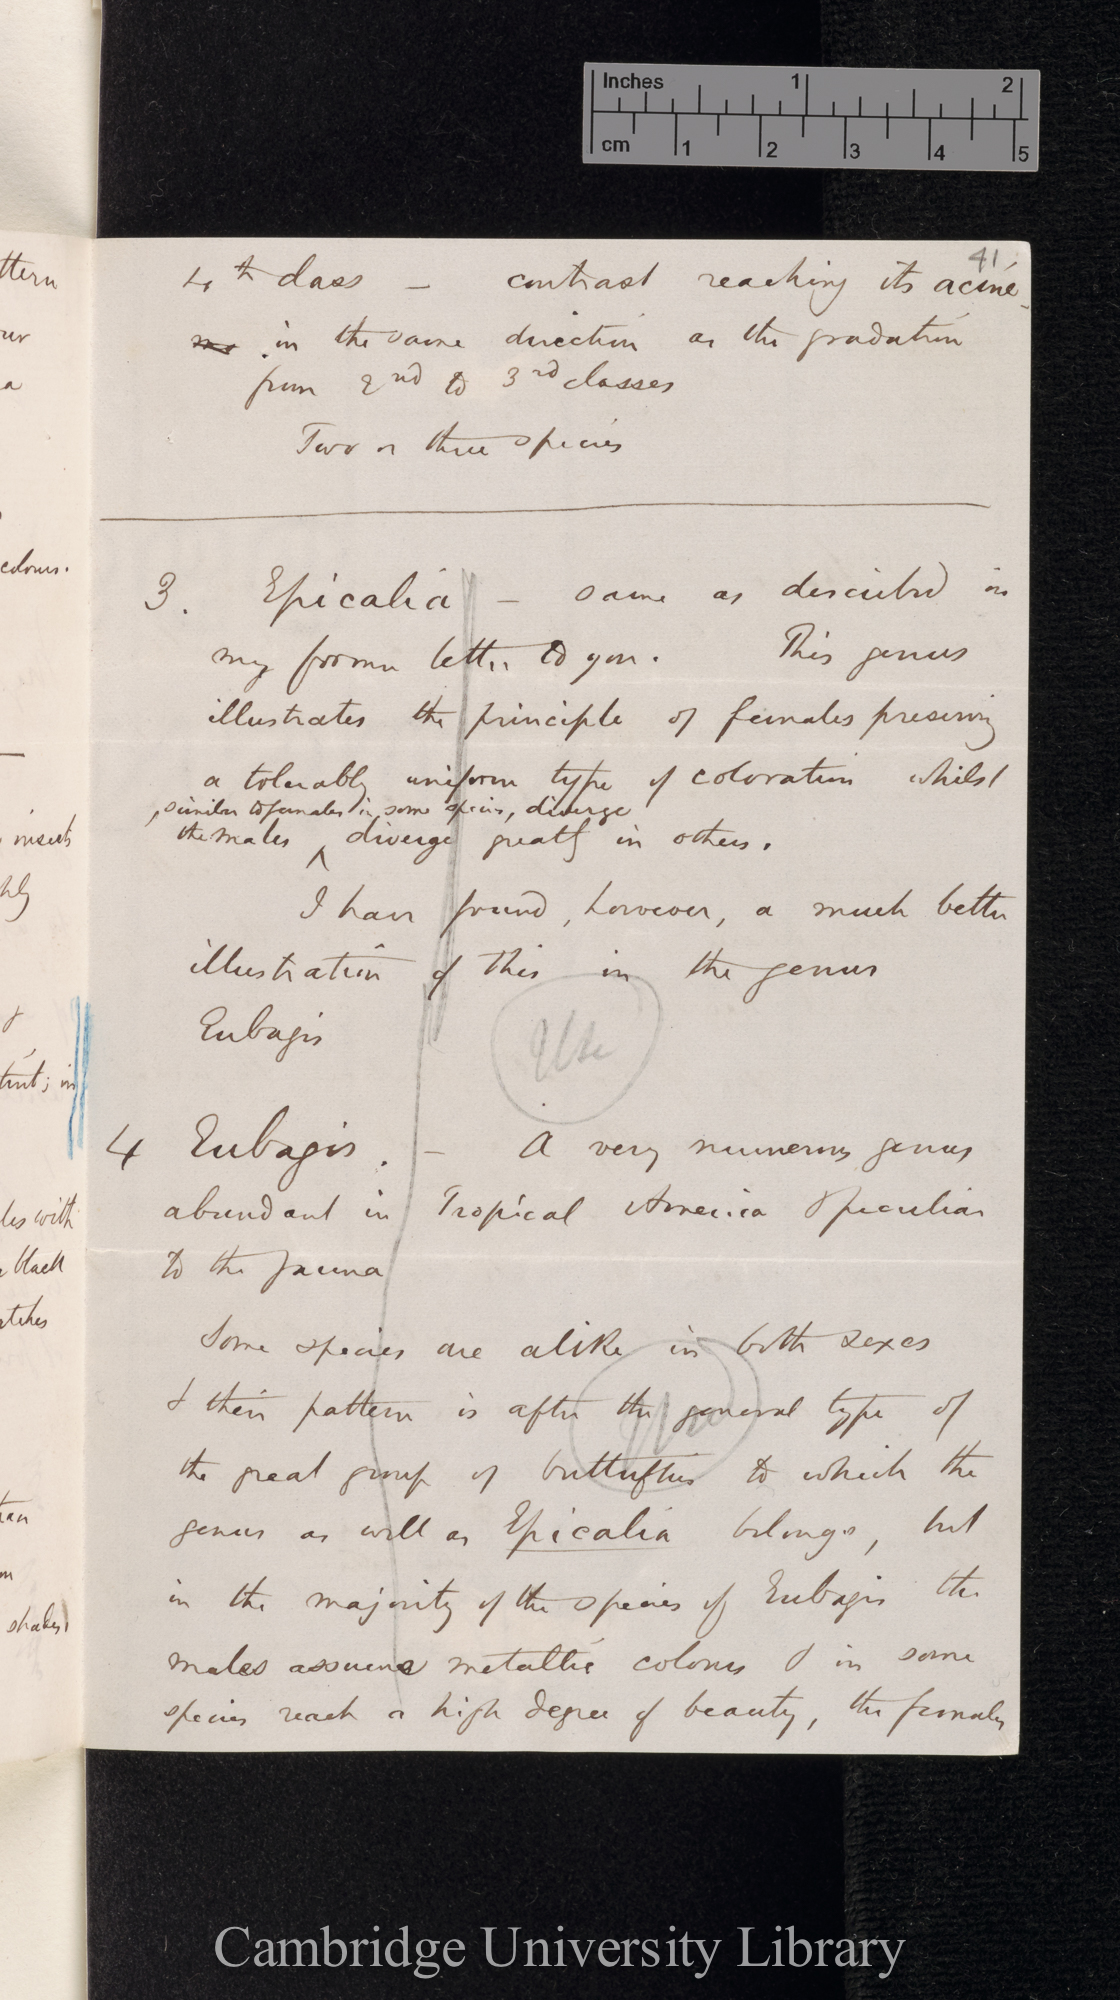 Inches 1 2
cm 1 2 3 4 5
41
4th class — contrast reaching its acmé
in the same direction as the gradation
from 2nd to 3rd classes
Two or three species
3. Epicalia — same as described in
my former letter to you. This genus
illustrates the principle of females preserving
a tolerably uniform type of coloration whilst
, similar to females in some species, diverge
the males ^ diverge greatly in others.
I have found, however, a much better
illustration of this in the genus
Eubagis
Use
4 Eubagis. — A very numerous genus
abundant in Tropical America & peculiar
to the fauna
Some species are alike in both sexes
& their pattern is after the general type of
the great group of butterflies to which the
genus as well as Epicalia belongs, but
in the majority of the species of Eubagis the
males assume metallic colours & in some
species reach a high degree of beauty, the females
ttern
our
a
colours.
insects
hly
&
tint; in
les with
black
atches
shades
Cambridge University Library